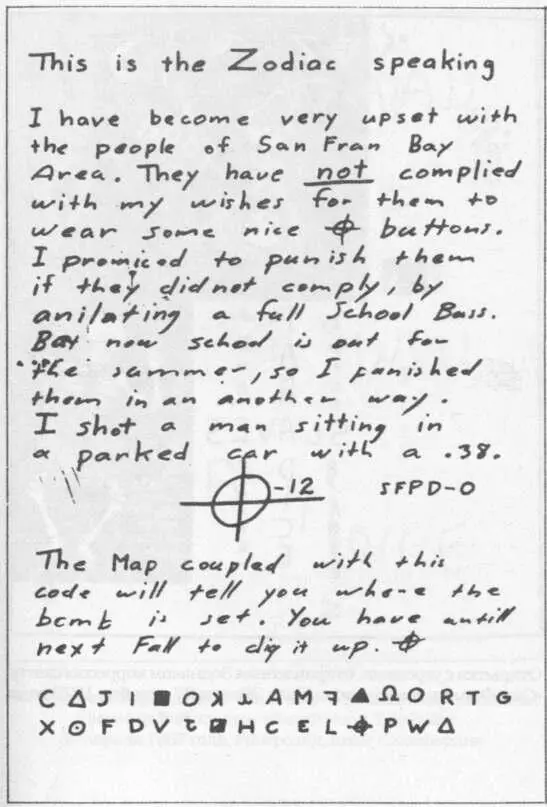 This is the Zodiac speaking
I have become very upset with
the people of San Fran Bay
Area. They have not complied
with my wishes for them to
wear some nice ⌖ buttons.
I promiced to punish them
if they did not comply, by
anilating a full School Buss.
But now school is out for
the summer, so I punished
them in an another way.
I shot a man sitting in
a parked car with a .38.
⌖-12 SFPD-0
The Map coupled with this
code will tell you where the
bomb is set. You have untill
next Fall to dig it up. ⌖
C Δ J I ■ O ʞ ⅄ A M ꟻ ▲ Ω O R T G
X ⊙ F D V H C E L ⌖ P W Δ